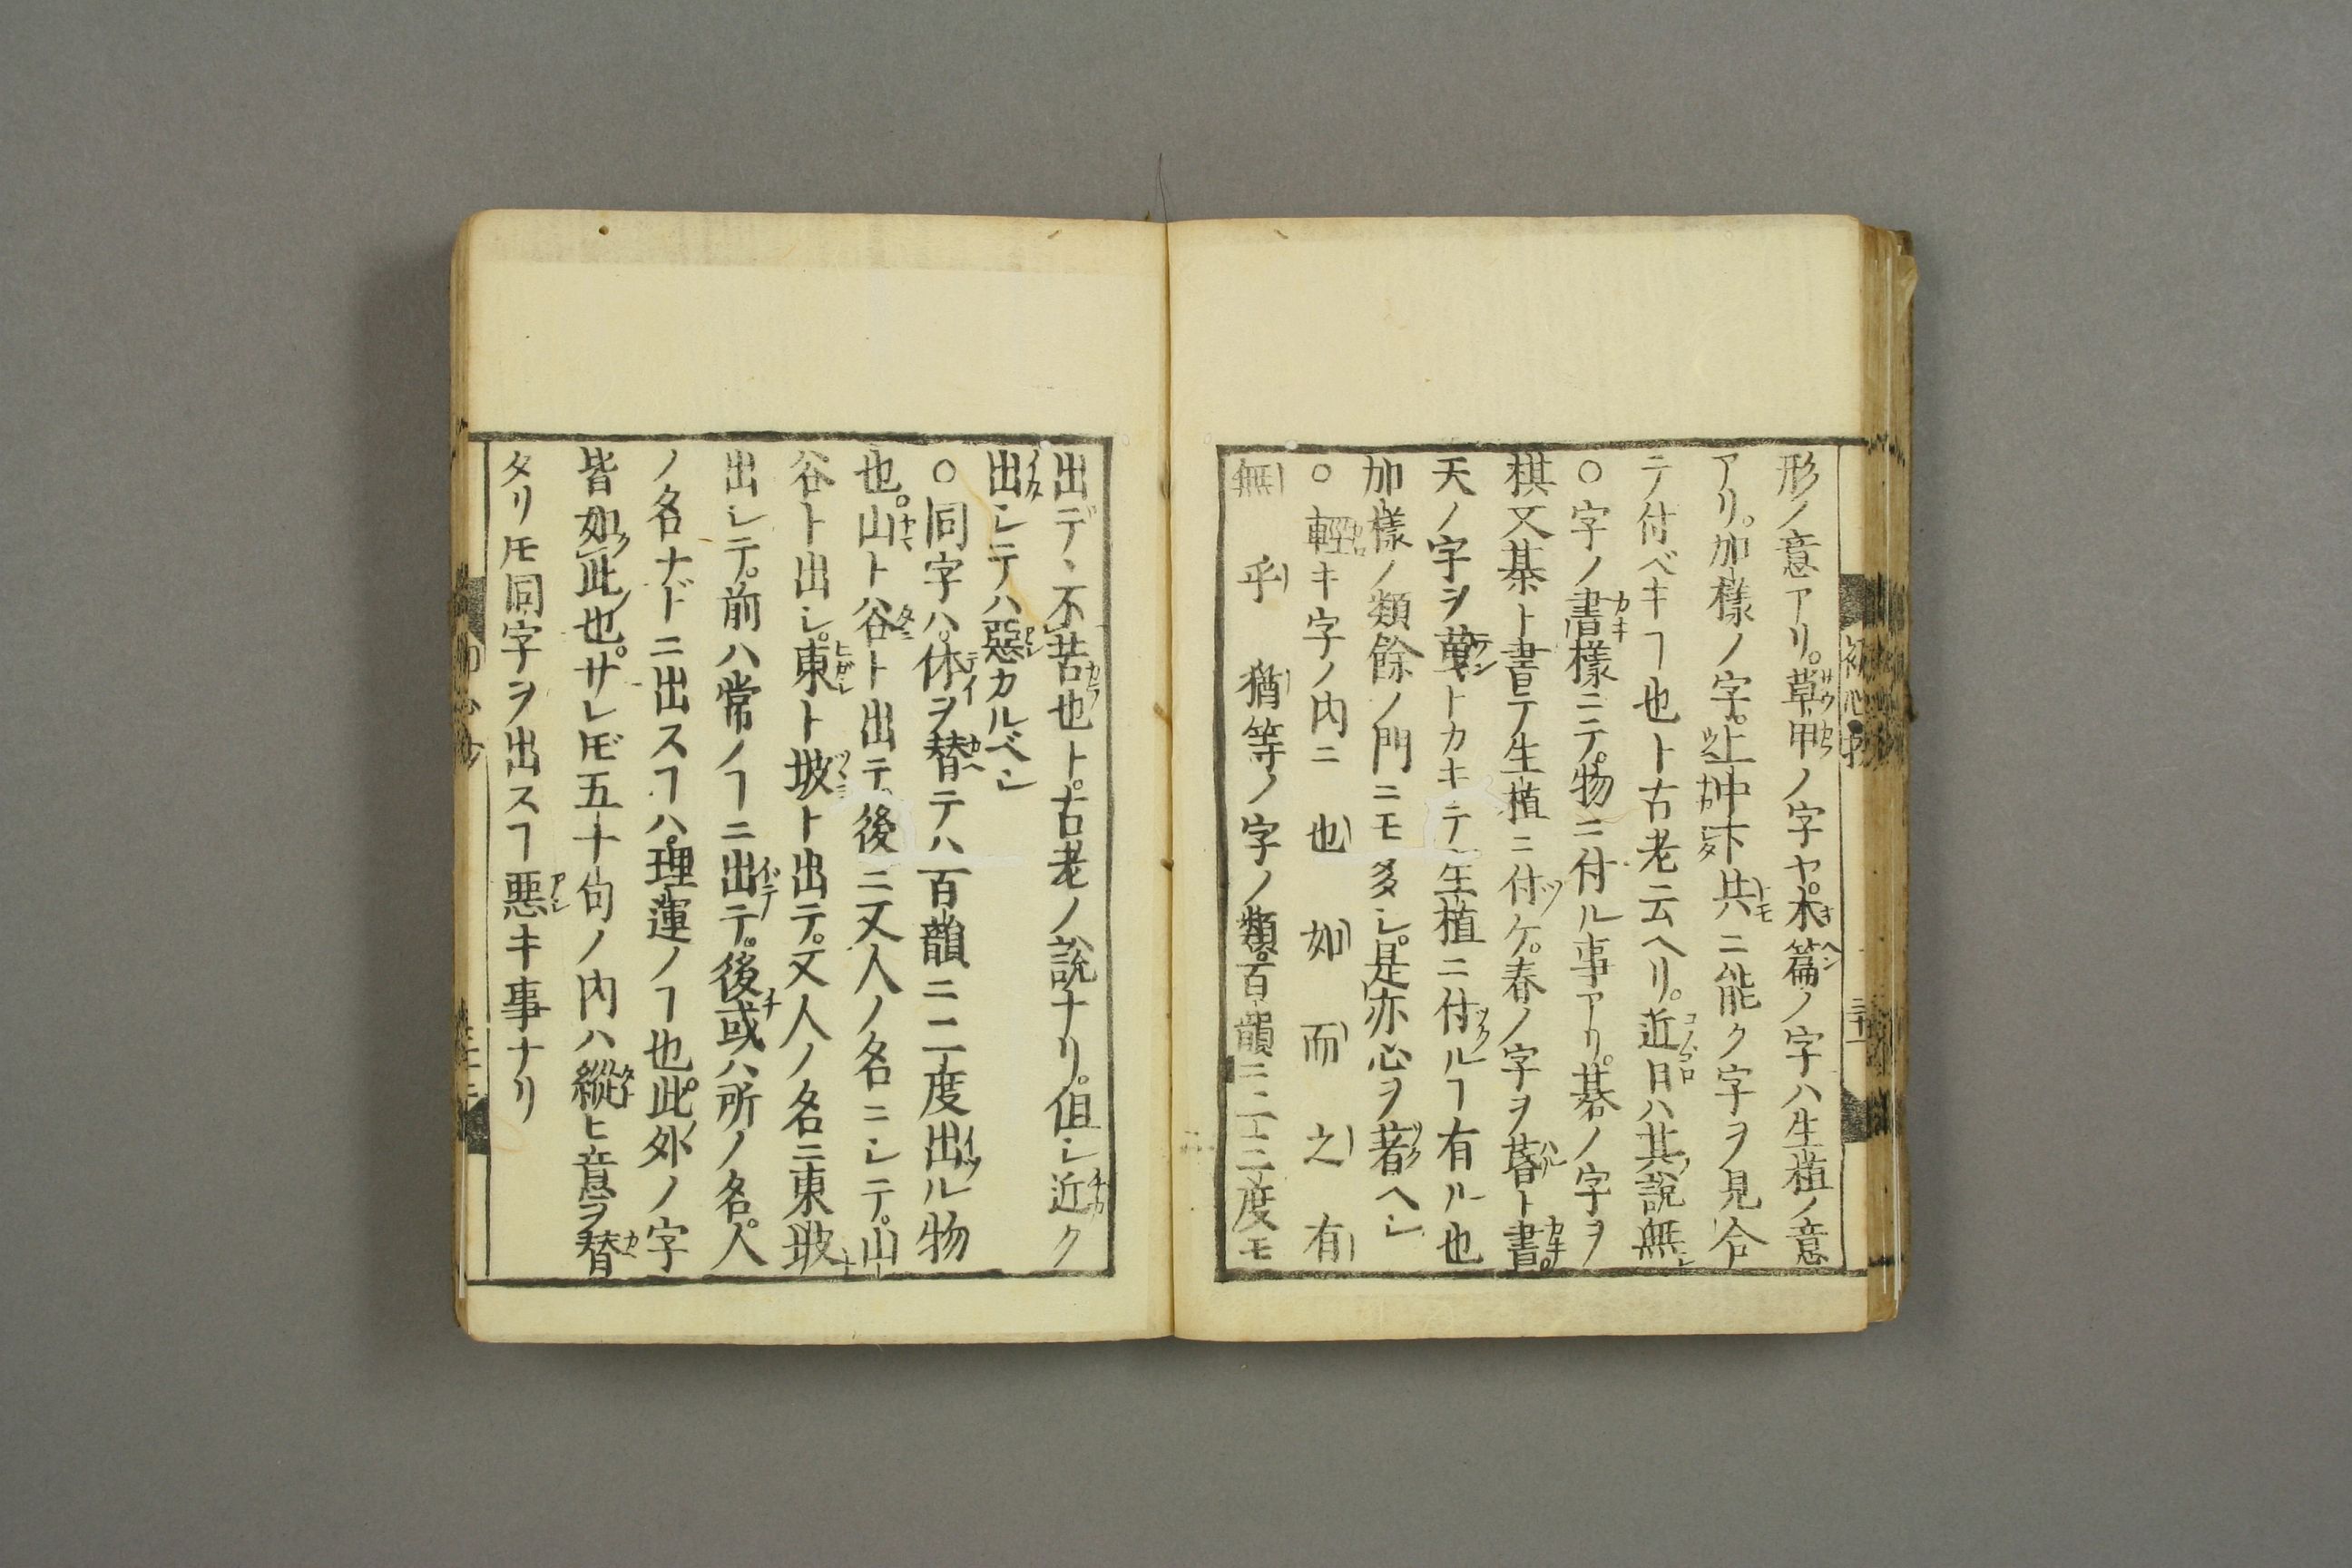 形ノ意アリ。草甲ノ字ヤ。木篇ノ字ハ生植ノ意
アリ。加樣ノ字。上中下共ニ能ク字ヲ見合
テ付ベキヿ也ト古老云ヘリ。近日ハ其說無
○字ノ書樣ニテ。物ニ付ル事アリ。碁ノ字ヲ
棋又棊ト書テ生植ニ付ケ。春ノ字ヲ萅ト書。
天ノ字ヲ𠀘トカキテ生植ニ付ルヿ有ル也
加樣ノ類餘ノ門ニモ多シ。是亦心ヲ著ヘシ
○輕キ字ノ内ニ也如而之有
無乎猶等ノ字ノ類。百韻ニ二三度モ
出デヽ不苦也ト。古老ノ說ナリ。但シ近ク
出シテハ惡カルベシ
○同字ハ。休ヲ替テハ百韻ニ二度出ル物
也。山ト谷ト出テ。後ニ又人ノ名ニシテ。山
谷ト出シ。東ト坡ト出テ。又人ノ名ニ東坡
出シテ。前ハ常ノヿニ出テ。後或ハ所ノ名。人
ノ名ナドニ出スヿハ。理運ノヿ也。此外ノ字
皆如此也。サレ𪜈五十句ノ内ハ縱ヒ意ヲ替
タリ𪜈同字ヲ出スヿ惡キ事ナリ
初心抄
三十一